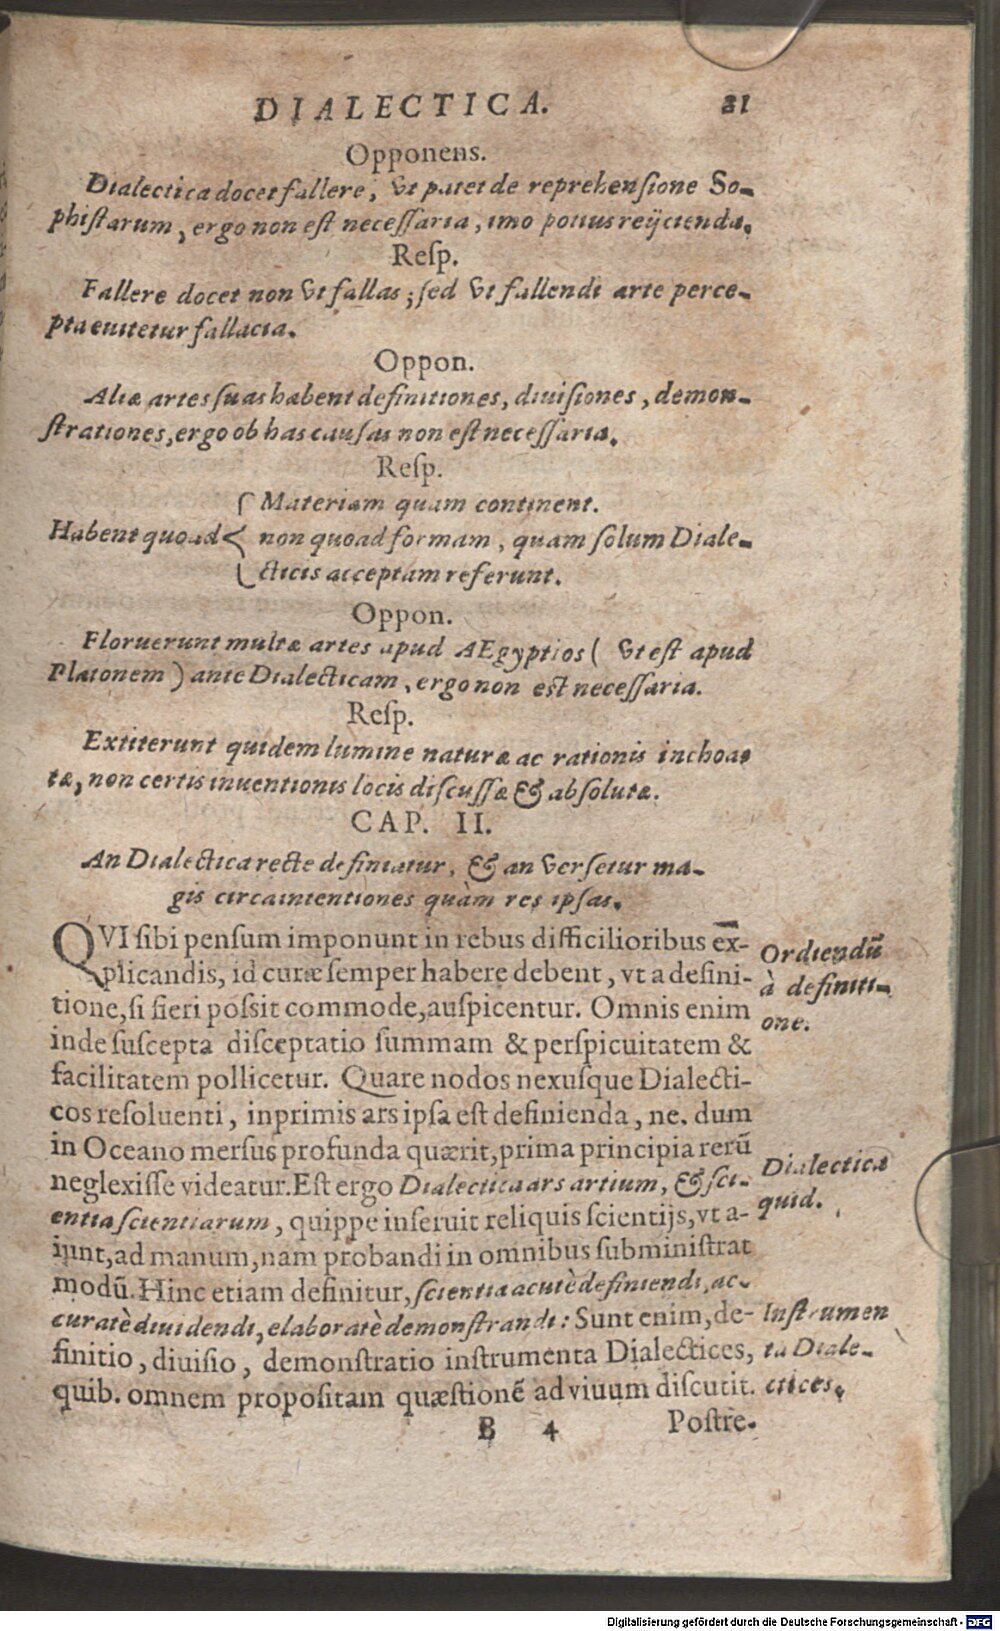 DIALECTICA. 21
Opponens.
Dialectica docet fallere, vt patet de reprehensione So-
phistarum, ergo non est necessaria, imo potius reijcienda.
Resp.
Fallere docet non vt fallas; sed vt fallendi arte perce-
pta euitetur fallacia.
Oppon.
Aliæ artes suas habent definitiones, diuisiones, demon-
strationes, ergo ob has causas non est necessaria.
Resp.
Materiam quam continent.
Habent quoad non quoad formam, quam solum Diale-
cticis acceptam referunt.
Oppon.
Floruerunt multæ artes apud AEgyptios ( vt est apud
Platonem ) ante Dialecticam, ergo non est necessaria.
Resp.
Extiterunt quidem lumine naturæ ac rationis inchoa-
tæ, non certis inuentionis locis discussæ & absolutæ.
CAP. II.
An Dialectica recte definiatur, & an versetur ma-
gis circa intentiones quàm res ipsas.
QVI sibi pensum imponunt in rebus difficilioribus ex-
plicandis, id curæ semper habere debent, vt a defini-
tione, si fieri possit commode, auspicentur. Omnis enim
inde suscepta disceptatio summam & perspicuitatem &
facilitatem pollicetur. Quare nodos nexusque Dialecti-
cos resoluenti, inprimis ars ipsa est definienda, ne. dum
in Oceano mersus profunda quærit, prima principia rerũ
neglexisse videatur. Est ergo Dialectica ars artium, & sci-
entia scientiarum, quippe inseruit reliquis scientijs, vt a-
iunt, ad manum, nam probandi in omnibus subministrat
modũ. Hinc etiam definitur, scientia acutè definiendi, ac-
curatè diuidendi, elaboratè demonstrandi: Sunt enim, de-
finitio, diuisio, demonstratio instrumenta Dialectices,
quib. omnem propositam quæstionẽ ad viuum discutit.
Ordiendũ
à definiti-
one.
Dialectica
quid.
Instrumen
ta Diale-
ctices.
B 4 Postre-
Digitalisierung gefördert durch die Deutsche Forschungsgemeinschaft - DFG